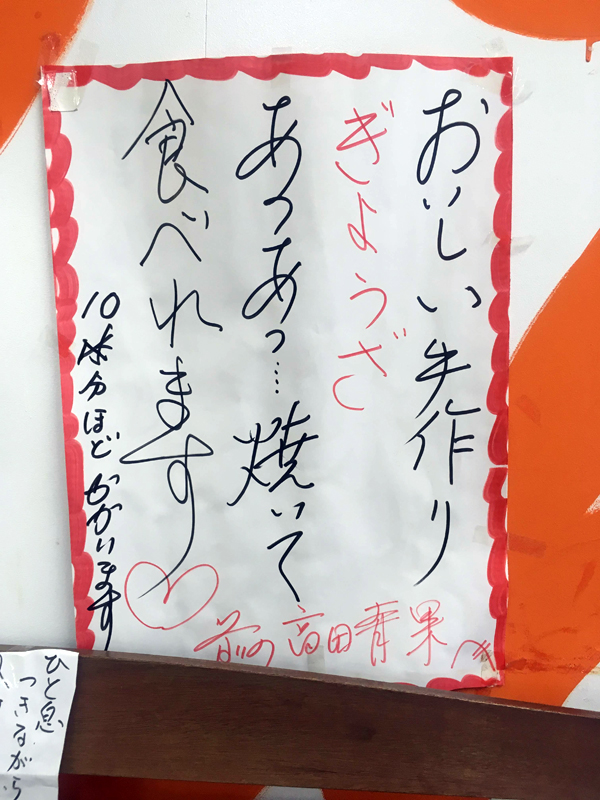 おいしい手作り
ぎょうざ
あつあつ…焼いて
食べれます
10分ほどかかいます
前の高田青果へ
ひと息
つきながら